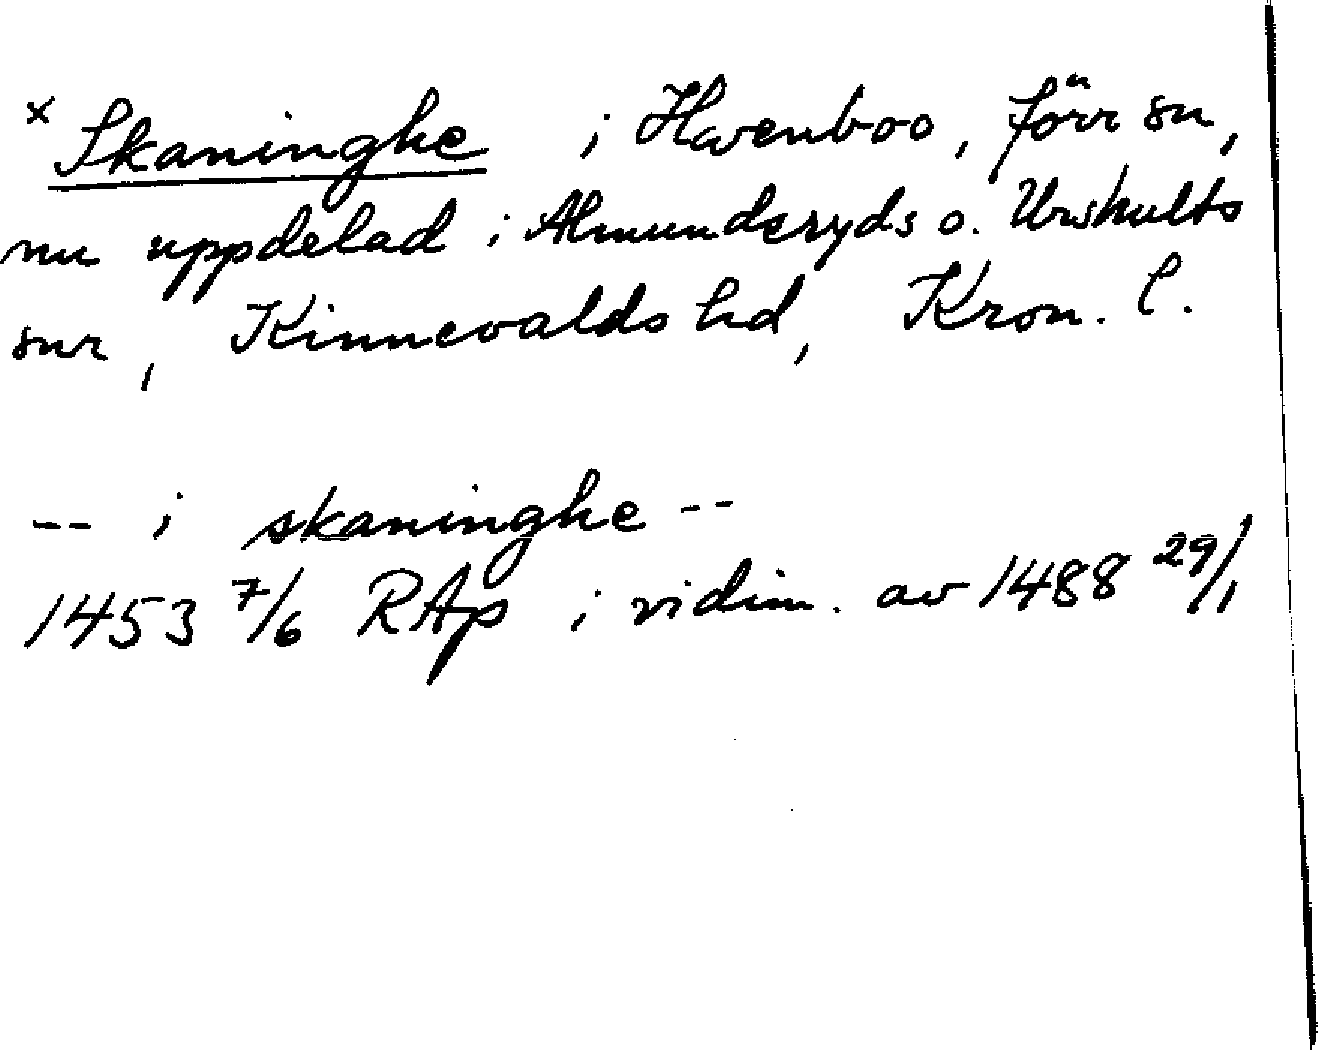 × Skaninghe i Hwenboo, förr sn,
nu uppdelad i Almundsryds o. Urshults
snr, Kinnevalds hd, Kron. l.
-- i skaninghe --
1453 7/6 RAp i vidim. av 1488 29/1